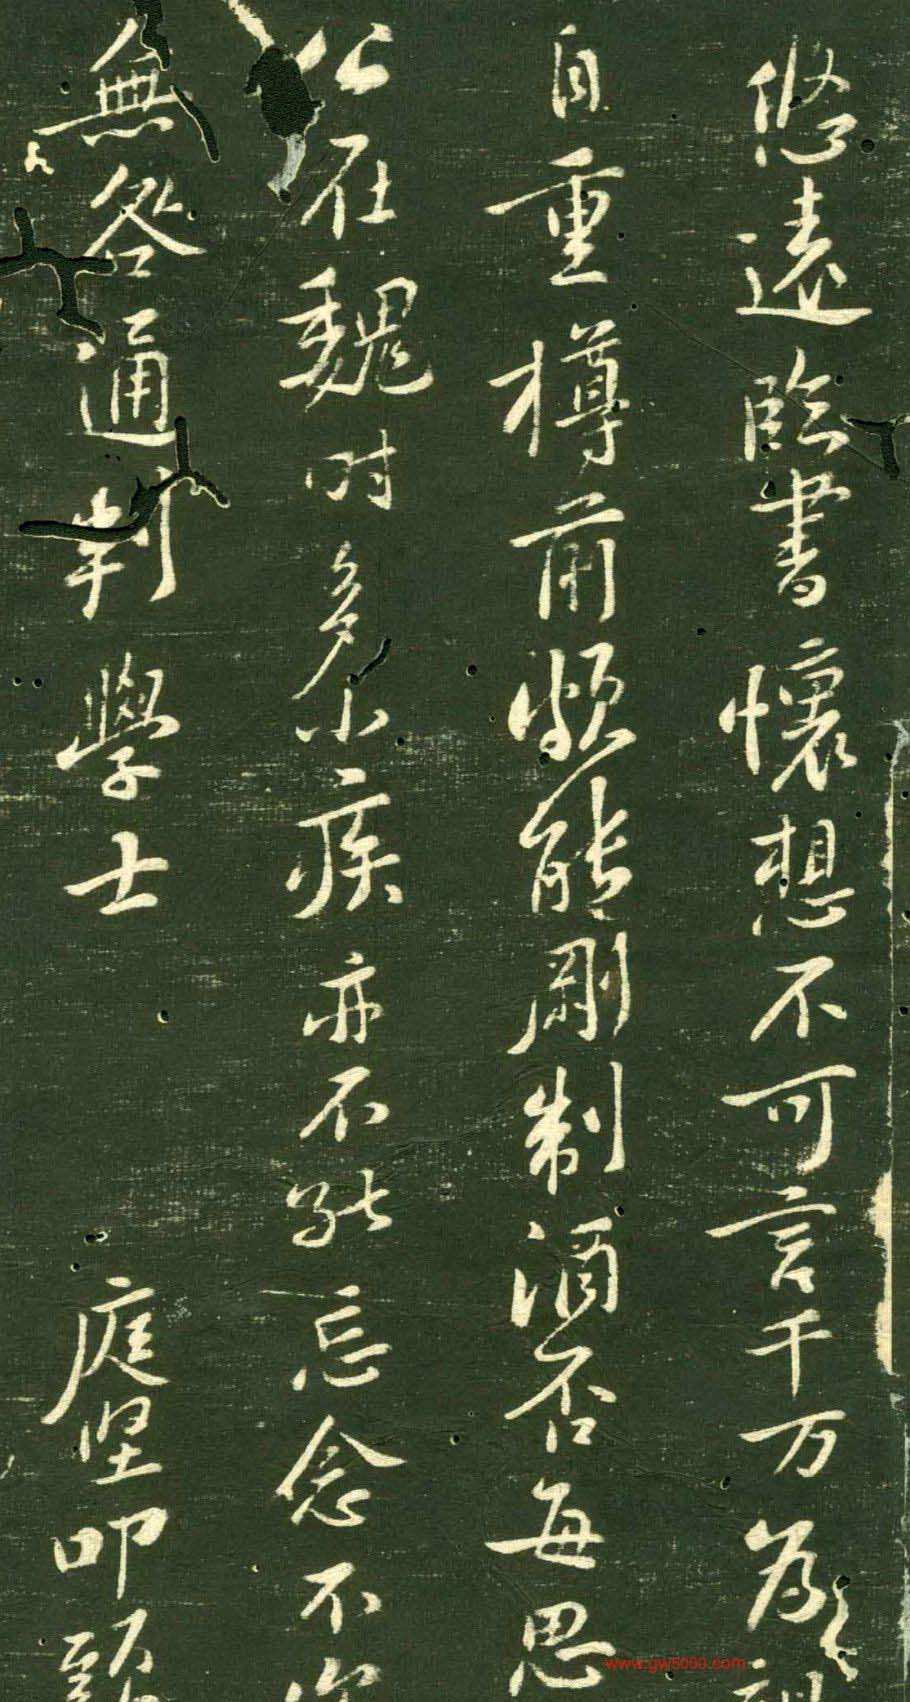 悠遠臨書懷想不可言千万為親
自重樽前頗能剛制酒否每思
公在魏時多小疾亦不能忘念不次
無咎通判學士 庭堅叩頭
www.gw5000.com